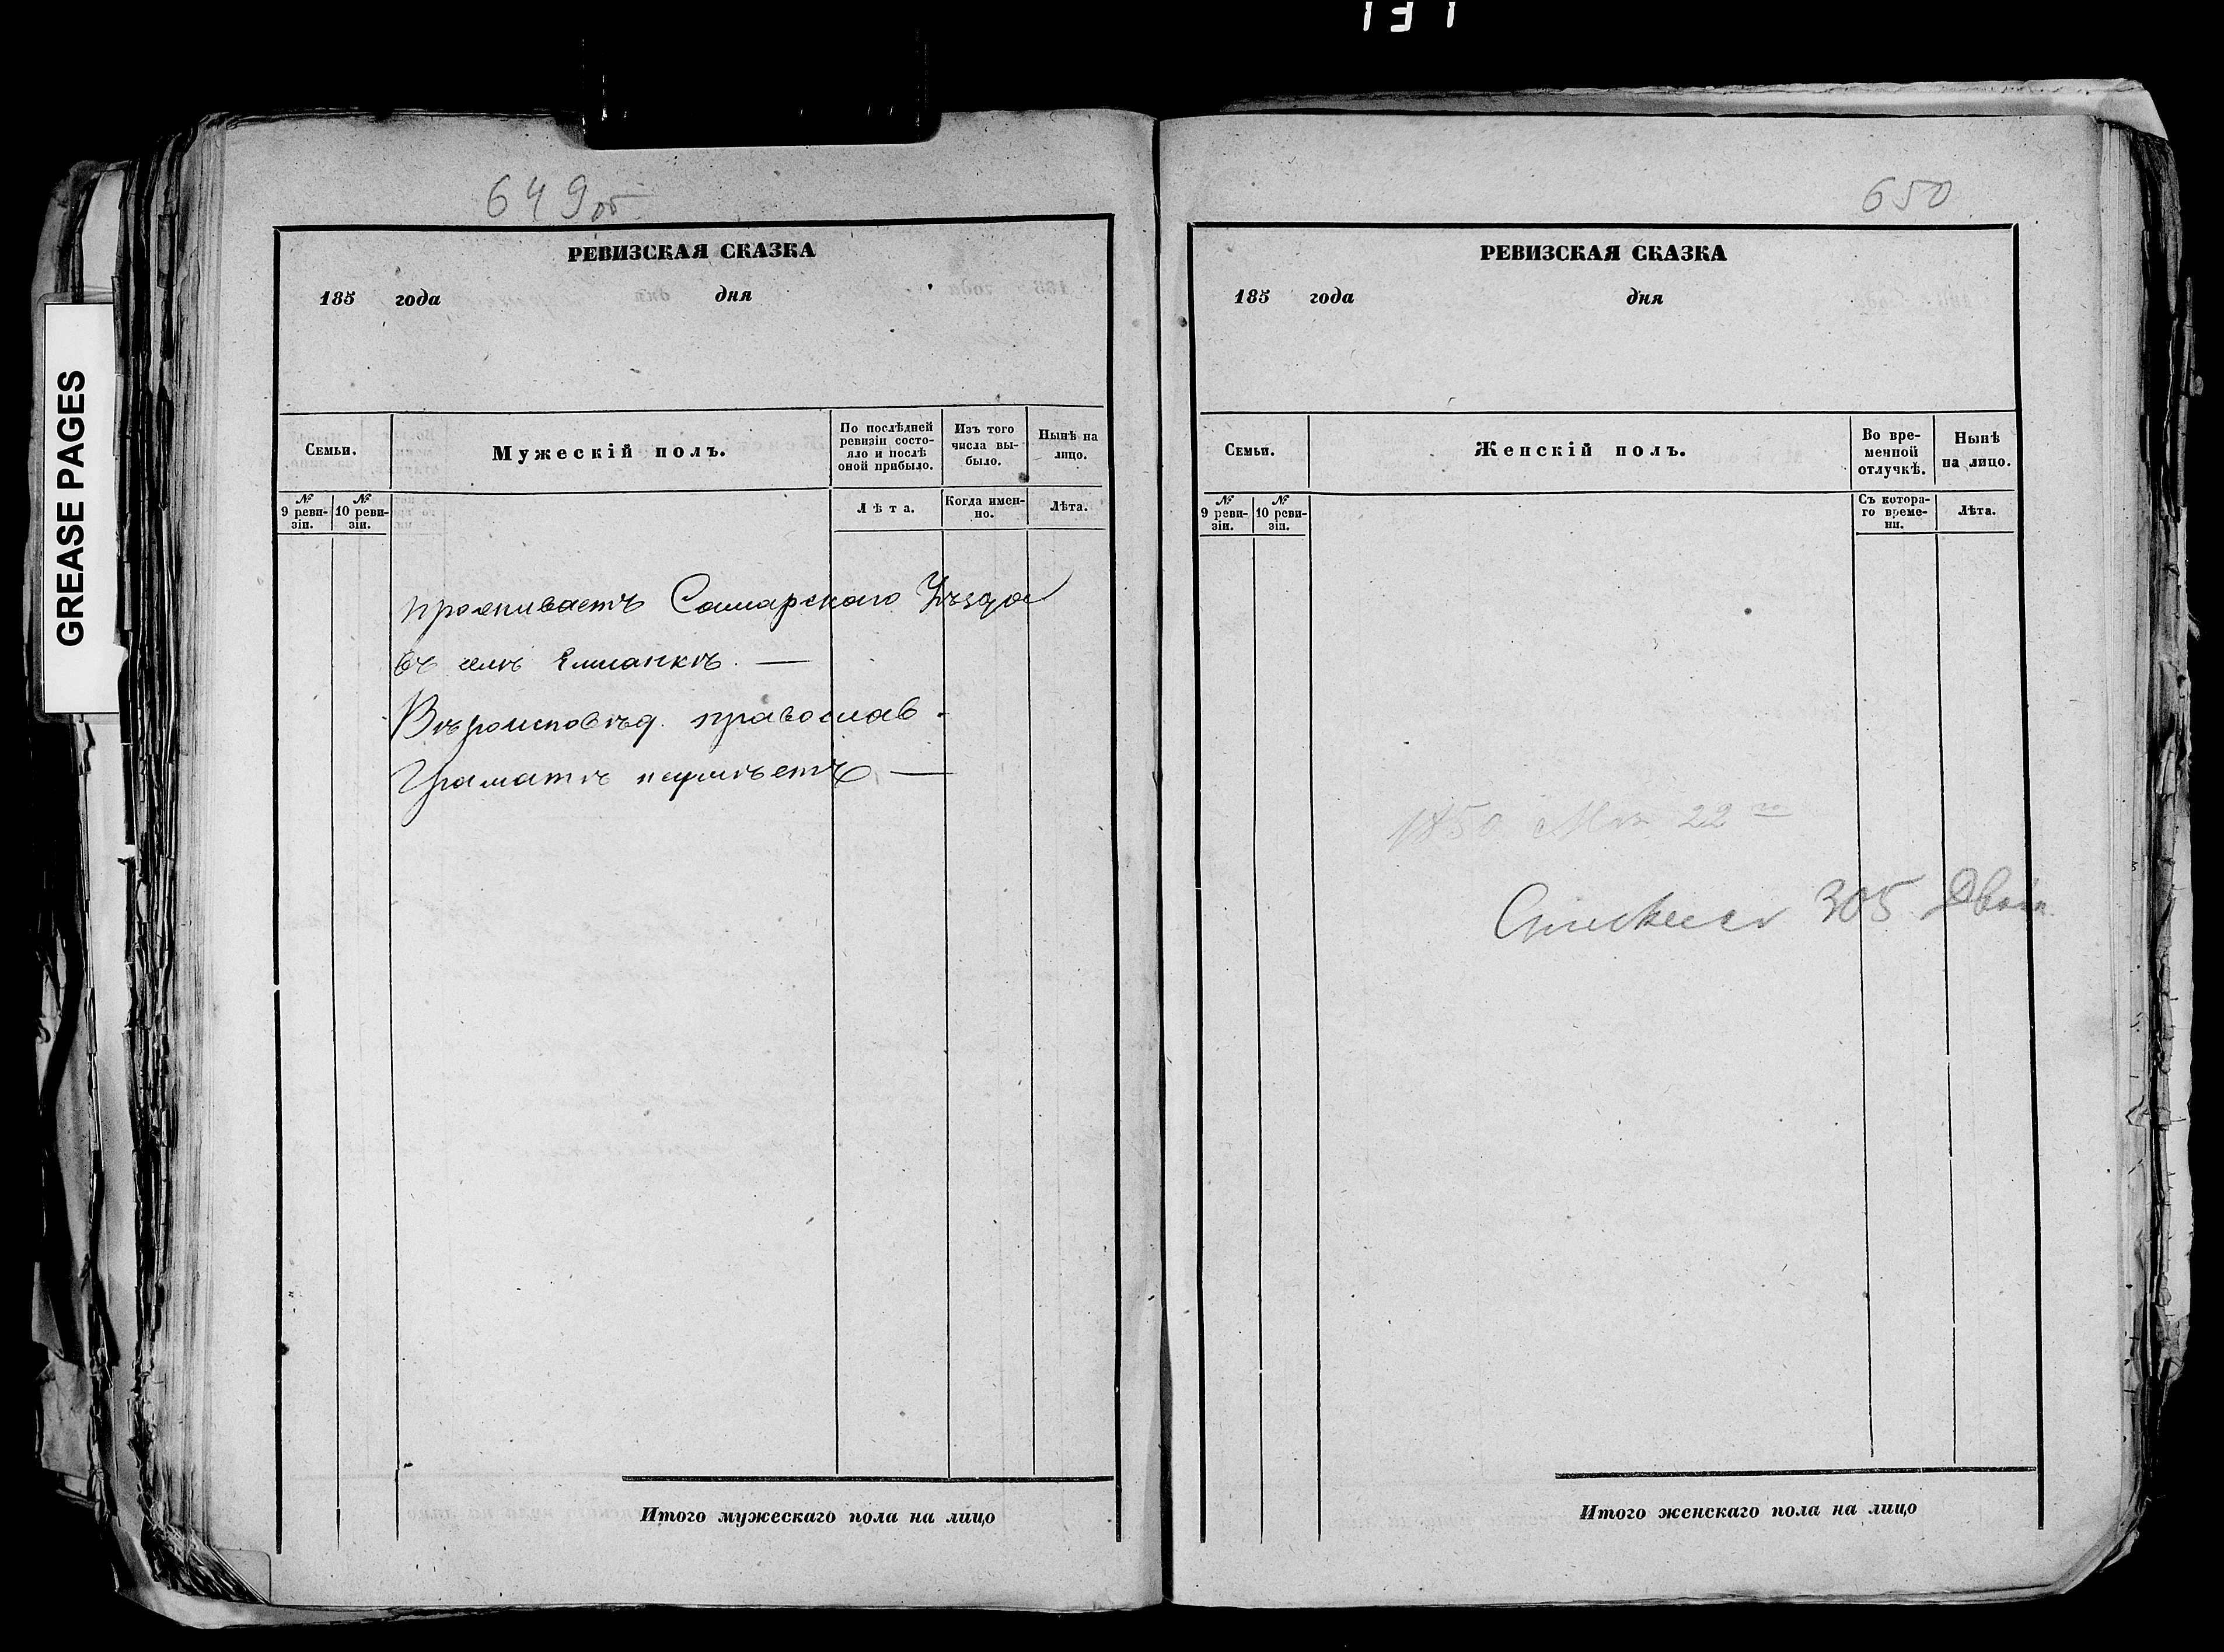 131
GREASE PAGES
649об
РЕВИЗСКАЯ СКАЗКА
185 года дня
Семьи.
Мужескій полъ.
По послѣдней ревизіи состо-
яло и послѣ
оной прибыло.
Изъ того
числа вы-
было.
Нынѣ на
лицо.
№
9 реви-
зіи.
№
10 реви-
зіи.
Лѣта.
Когда имен-
но.
Лѣта.
проживаетъ Самарскаго Уѣзда
въ селѣ Елшанкѣ. —
Вѣроисповѣд. православ.
Граматѣ неумѣетъ —
Итого мужескаго пола на лицо
650
РЕВИЗСКАЯ СКАЗКА
185 года дня
Семьи.
Женскій полъ.
Во вре-
менной
отлучкѣ.
Нынѣ
на лицо.
№
9 реви-
зіи.
№
10 реви-
зіи.
Съ котора-
го време-
ни.
Лѣта.
1850 22
305
Итого женскаго пола на лицо